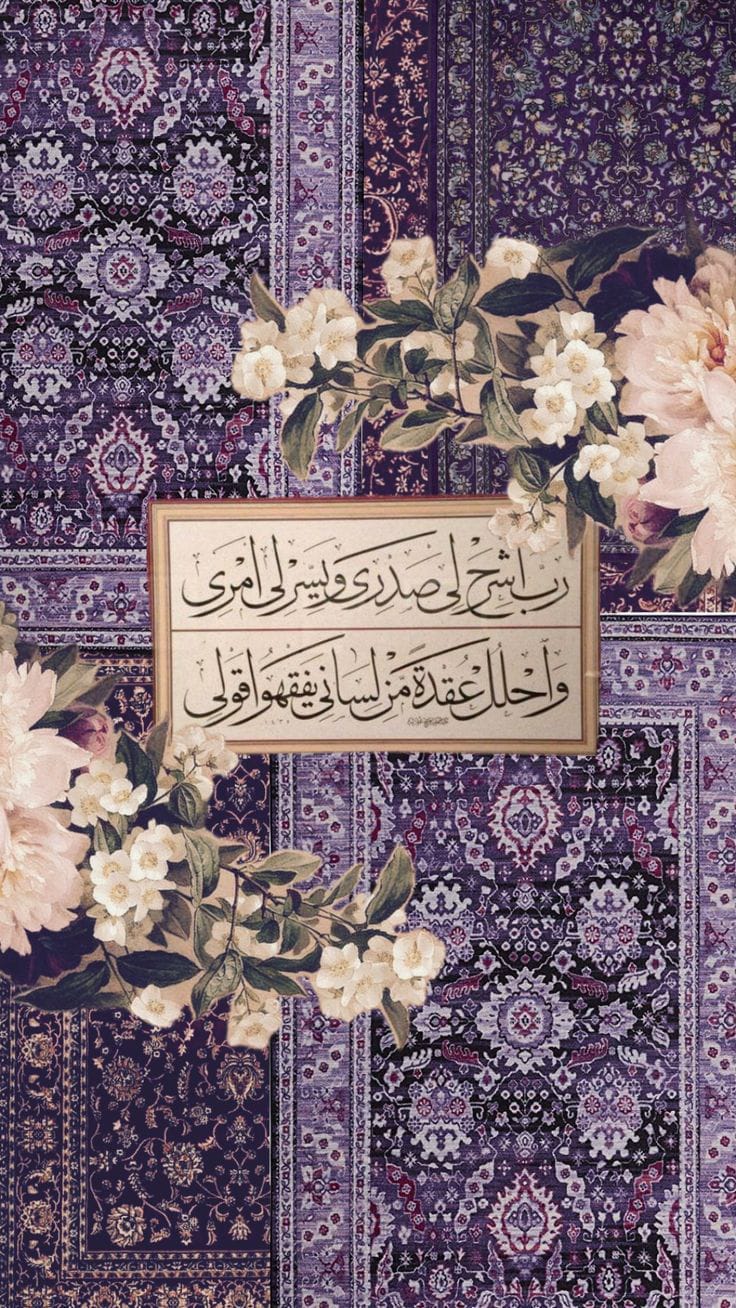 رَبِّ اشْرَحْ لِى صَدْرِى وَيَسِّرْ لِى اَمْرِى
وَاحْلُلْ عُقْدَةً مِنْ لِسَانِى يَفْقَهُوا قَوْلِى